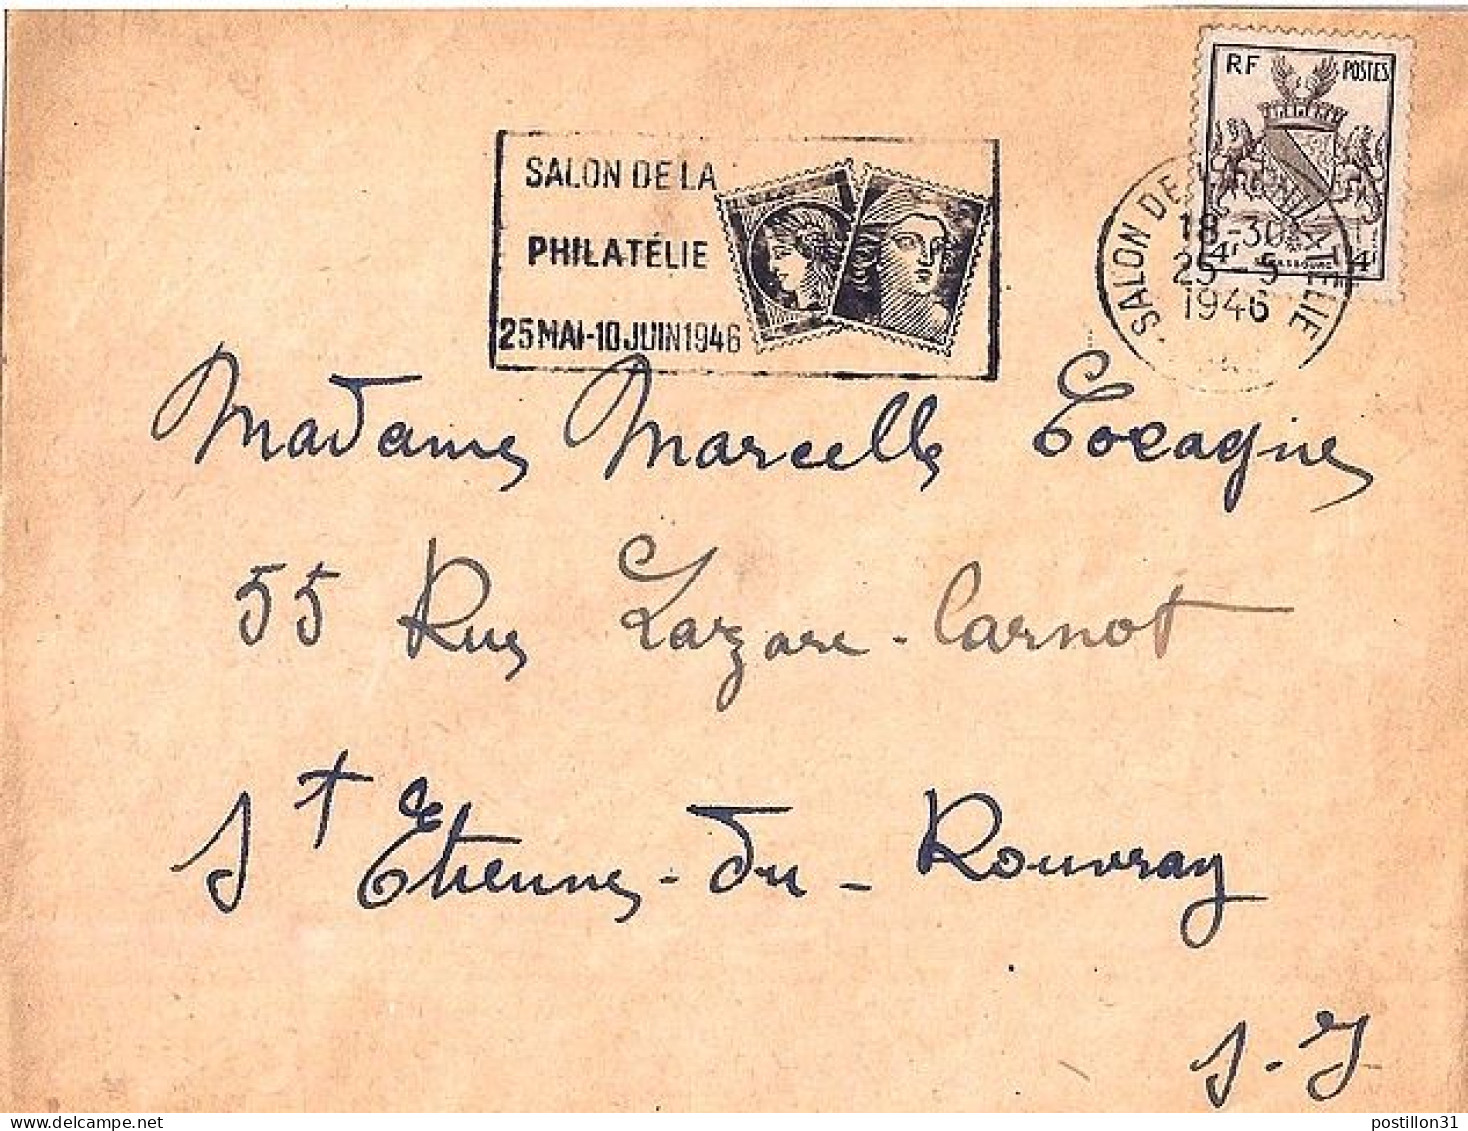 RF POSTES
SALON DE LA
PHILATÉLIE
25 MAI-10 JUIN 1946
SALON DE LA PHILATÉLIE
18-30
25-5
1946
4F 4F
Madame Marcelle Cocagne
55 Rue Lazare-Carnot
St Etienne-du-Rouvray
S.I
postillon31